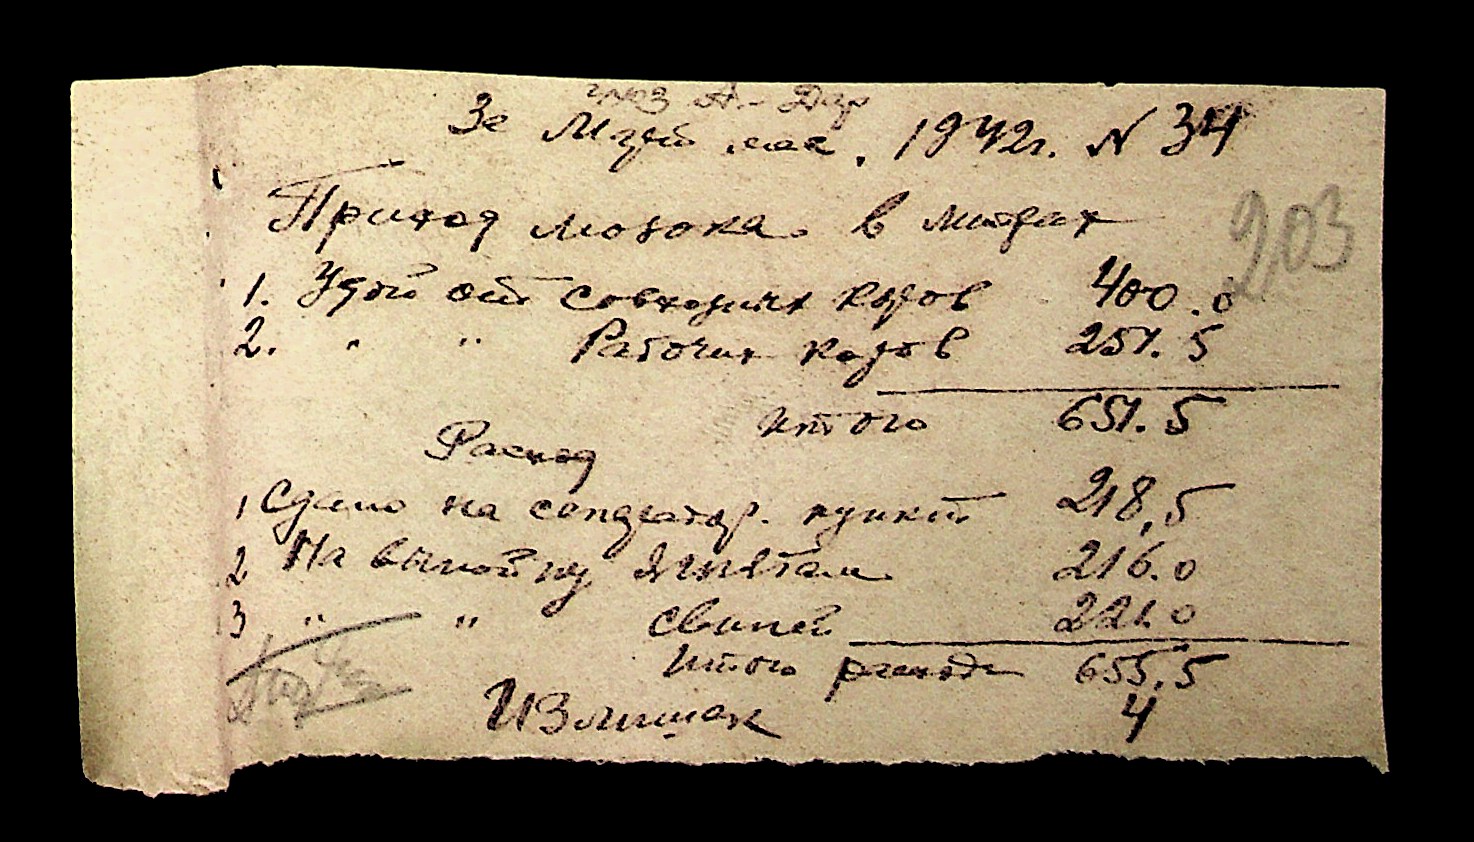 За Май м-ц. 1942г. № 34
203
Приход молока в литрах
1. Удой от совхозных коров 400.0
2. " " Рабочих коров 251.5
итого 651.5
Расход
1 Сдано на сепаратор. пункт 218,5
2 На выпойку телятам 216.0
3 " " свиней 221.0
Итого расхода 655.5
Излишек 4